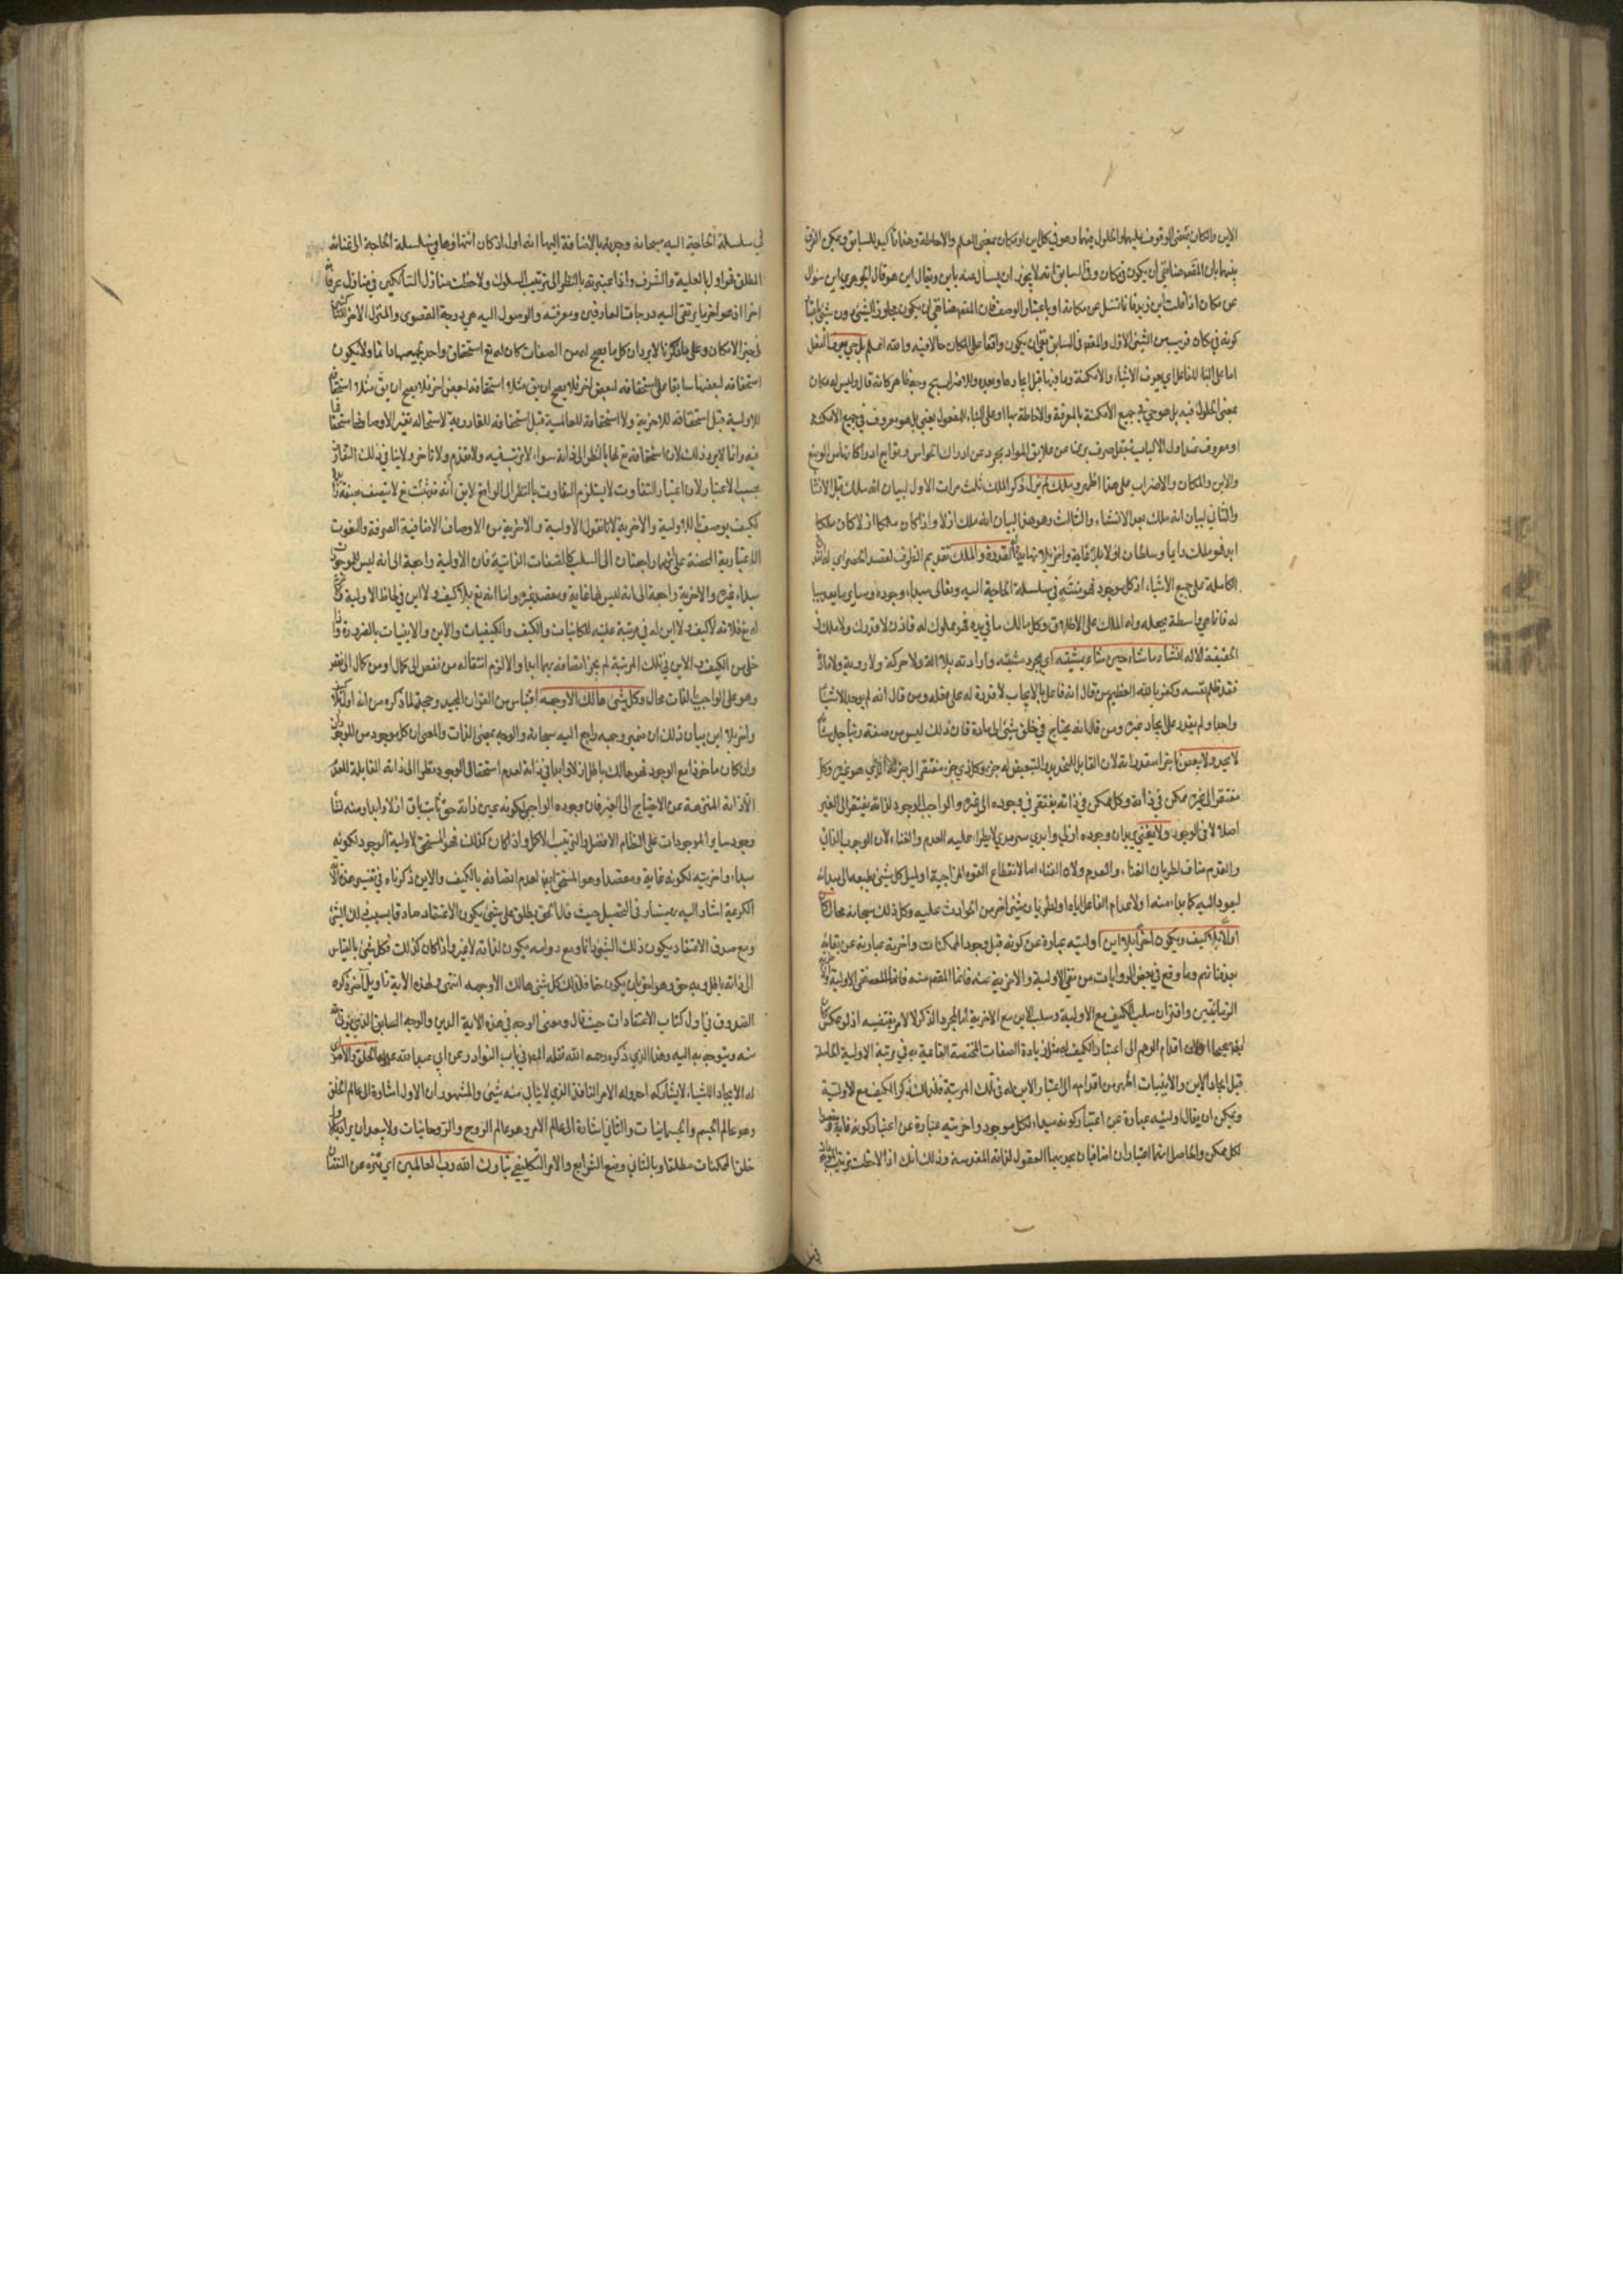 الاين والمكان بمعنى الوقوف عليهما والحلول فيهما وهو في كل اين او مكان بمعنى العلم والاحاطة وهذا تأكيد للسابق ويمكن الفرق
بينهما بان المقصود هنا نفي ان يكون في مكان وفي السابق انه لا يجوز ان يسأل عنه باين ويقال اين هو قال الجوهري اين سؤال
عن مكان اذا قلت اين زيد فانما تسئل عن مكانه او باعتبار الوصف فان المقصود هنا نفي ان يكون مجاور الشيء دون شيء
كونه في مكان قريب من الشيء الاول والمقصود في السابق نفي ان يكون واقعا على المكان حالا فيه والله اعلم بل حي يعرف الفعل
اما على البناء للفاعل اي يعرف الاشياء والامكنة وما فيها قبل ايجادها وبعده والاضراب صحيح وحينئذ قال وليس له مكان
بمعنى الحلول فيه بل هو حي في جميع الامكنة بالمعرفة والاحاطة بها او على البناء للمفعول يعني بل هو معروف في جميع الامكنة
او معروف عند اولي الالباب بعقل صرف بريء عن علايق المواد مجرد عن ادراك الحواس
والاين والمكان والاضراب على هذا اظهر وملك لم يزل ذكر الملك ثلث مرات الاول لبيان انه ملك قبل الانشاء
والثاني لبيان انه ملك بعد الانشاء والثالث وهو هذا لبيان انه ملك ازلا واذ كان ملكا ازلا كان ملكا
ابدا فهو ملك دايما وسلطان اولا بلا غاية واخر بلا نهاية له القدرة والملك تقديم الظرف لقصد الحصر اي له
الكاملة على جميع الاشياء اذ كل موجود فهو ينتهي في سلسلة الحاجة اليه وهو تعالى مبداء وجوده وساير ما يعد سببا
له فانما هي واسطة بجعله وله الملك على الاطلاق وكل مالك ما في يده فهو مملوك له فاذن لا قدرة ولا ملك في
الحقيقة الا له انشاء ما شاء حين شاء بمشيته اي بمجرد مشيته وارادته بلا الة ولا حركة ولا روية ولا مادة
فقد ظلم نفسه وكفر بالله العظيم من قال انه فاعل بالايجاب لا قدرة له على فعله ومن قال انه لم يوجد الا شيئا
واحدا ولم يقدر على ايجاد غيره ومن قال انه يحتاج في خلق شيء الى مادة فان ذلك ليس من صفة
لا يحد ولا يبعض لان القابل للتحديد والتبعيض له جزء وكل ذي جزء مفتقر الى جزئه الذي هو غيره وكل
مفتقر الى غيره ممكن في ذاته وكل ممكن في ذاته يفتقر في وجوده الى غيره والواجب الوجود لذاته لا يفتقر الى الغير
اصلا لا في الوجود ولا يفنى بيان وجوده ازلي وابدي سرمدي لا يطراء عليه العدم والفناء لان الوجوب الذاتي
والقدم مناف لطريان الفناء والعدم ولان الفناء اما لانقطاع القوة المزاجية او لميل كل شيء بطبعه الى مبدائه
ليعود اليه كما بداء منه او لانعدام الفاعل اياه او لطريان شيء اخر من الحوادث عليه وكل ذلك سبحانه محال كان
اولا بلا كيف ويكون اخرا بلا اين اوليته عبارة عن كونه قبل وجود الممكنات واخريته عبارة عن بقائه
بعد فنائهم وما وقع في بعض الروايات من نفي الاولية والاخرية عنه فانما المقصود منه
الزمانيتين واقتران سلب الكيف مع الاولية وسلب الاين مع الاخرية اما لمجرد الذكر لا لامر يقتضيه اذ لو عكس
قبل ايجاد الاين والاينيات اظهر من اقدامه الى اعتبار الاين له في تلك المرتبة فلذلك ذكر الكيف مع الاولية
ويمكن ان يقال اوليته عبارة عن اعتبار كونه مبداء لكل موجود واخريته عبارة عن اعتبار كونه غاية
لكل ممكن والحاصل انهما اعتباران اضافيان يحدثهما العقول لذاته المقدسة وذلك انك اذا لاحظت ترتيب
في سلسلة الحاجة اليه سبحانه وجدته بالاضافة اليها انه اول اذ كان انتهاؤها في سلسلة الحاجة الى غنائه
المطلق فهو اول بالعلية والشرف واذا اعتبرته بالنظر الى ترتيب السلوك ولاحظت منازل السالكين في منازل عرفانه
اخرا اذ هو اخر ما يرتقي اليه درجات العارفين ومعرفته والوصول اليه هي درجة القصوى والمنزل الاخر
لحيز الامكان وعلى ما ذكرنا لا يرد ان كل ما يصح له من الصفات كان له تع استحقاق واحد بجميعها دائما ولا يكون
استحقاقه لبعضها سابقا على استحقاقه لبعض اخر فلا يصح ان يق مثلا استحقاقه لبعض اخر فلا يصح ان يق مثلا استحقاقه
للاولية قبل استحقاقه للاخرية ولا استحقاقه للعالمية قبل استحقاقه للقادرية لاستحالة تغير الاوصاف
فيه وانما لا يرد ذلك لان استحقاقه تع لها بالنظر الى ذاته سواء لا ترتب فيه ولا تقدم ولا تاخر ولا ينافي ذلك التفاوت
بحسب الاعتبار لان اعتبار التفاوت لا يستلزم التفاوت بالنظر الى الواقع لا يق انه قد ثبت تع لا يتصف بصفة
فكيف يوصف بالاولية والاخرية لانا نقول الاولية والاخرية من الاوصاف الاضافية الصرفة والنعوت
الاعتبارية المحضة على انهما راجعتان الى السلب كالصفات الذاتية فان الاولية راجعة الى انه ليس للموجودات
مبداء غيره والاخرية راجعة الى انه ليس لها غاية ومقصد غيره وانما انه تع بلا كيف ولا اين في لحاظ الاولية
له تع فلانه لا كيف ولا اين له في مرتبة علية للكائنات والكيف والكيفيات والاين والاينيات بالضرورة
خلى من الكيف والاين في تلك المرتبة لم يجز اتصافه بهما ابدا والا لزم انتقاله من نقص الى كمال او من كمال الى نقص
وهو على الواجب بالذات محال وكل شيء هالك الا وجهه اقتباس من القران المجيد وحجة لما ذكره من انه اول بلا
واخر بلا اين بيان ذلك ان ضمير وجهه راجع اليه سبحانه والوجه بمعنى الذات والمعنى ان كل موجود من الموجودات
وان كان ماخوذا مع الوجود فهو هالك باطل ازلا وابدا في ذاته لعدم استحقاقه الوجود نظرا الى ذاته القابلة للعدم
الا ذاته المنزهة عن الاحتياج الى الغير فان وجوده الواجبي لكونه عين ذاته حق ثابت باق ازلا وابدا ومنه نشأ
وجود ساير الموجودات على النظام الافضل والترتيب الاكمل واذا كان كذلك فهو المستحق لاولية الوجود لكونه
مبداء واخريته لكونه غاية ومقصدا وهو المستحق ايضا لعدم اتصافه بالكيف والاين وما ذكرناه في تفسير هذه الاية
الكريمة اشار اليه بهمنيار في التحصيل حيث قال الحق يطلق على شيء يكون الاعتقاد صادقا
ومع صدق الاعتقاد يكون ذلك الشيء دائما ومع دوامه يكون لذاته لا لغيره واذا كان كذلك فكل شيء بالقياس
الى ذاته باطل وبه حق وهو احق بان يكون حقا فلذلك كل شيء هالك الا وجهه انتهى ولهذه الاية تاويل اخر ذكره
الصدوق في اول كتاب الاعتقادات حيث قال ومعنى الوجه في هذه الاية الدين والوجه السابق الذي يؤتى الله
منه ويتوجه به اليه وهذا الذي ذكره رحمه الله نقله المصنف في باب النوادر عن ابي عبد الله عليه السلام له الخلق والامر
له الايجاد للاشياء لا يشاركه احد وله الامر النافذ الذي لا يتأبى منه شيء والمشهور ان الاول اشارة الى عالم الخلق
وهو عالم الجسم والجسمانيات والثاني اشارة الى عالم الامر وهو عالم الروح والروحانيات ولا يبعد ان يراد بالاول
خلق الممكنات مطلقا وبالثاني وضع الشرايع والامر التكليفي تبارك الله رب العالمين اي تنزه عن النقصان